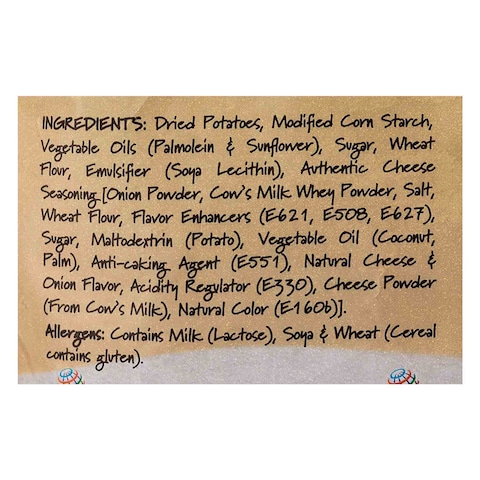 INGREDIENTS: Dried Potatoes, Modified Corn Starch,
Vegetable Oils (Palmolein & Sunflower), Sugar, Wheat
Flour, Emulsifier (Soya Lecithin), Authentic Cheese
Seasoning [Onion Powder, Cow's Milk Whey Powder, Salt,
Wheat Flour, Flavor Enhancers (E621, E508, E627),
Sugar, Maltodextrin (Potato), Vegetable Oil (Coconut,
Palm), Anti-caking Agent (E551), Natural Cheese &
Onion Flavor, Acidity Regulator (E330), Cheese Powder
(From Cow's Milk), Natural Color (E160b)].
Allergens: Contains Milk (Lactose), Soya & Wheat (Cereal
contains gluten).